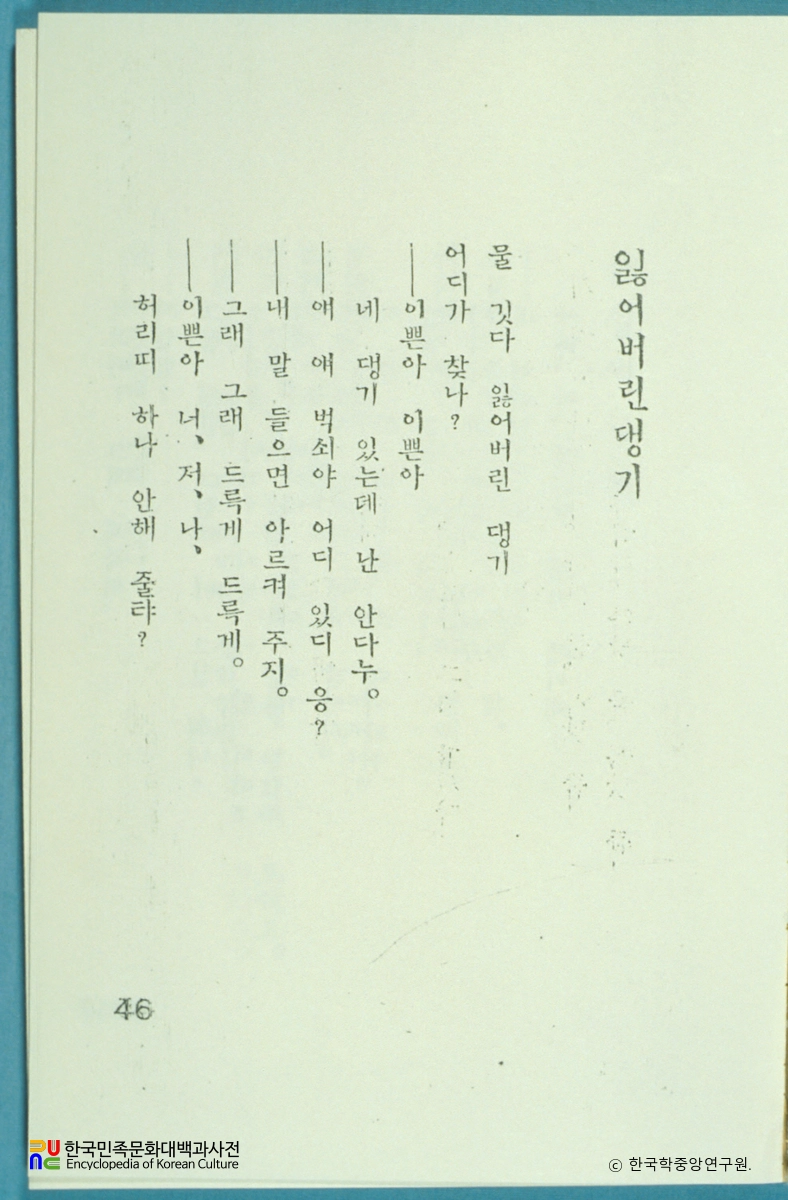 잃어버린댕기
물 깃다 잃어버린 댕기
어디가 찾나?
──이쁜아 이쁜아
네 댕기 있는데 난 안다누。
──애 얘 벅쇠야 어디 있디 응?
──내 말 들으면 아르켜 주지。
──그래 그래 드륵게 드륵게。
──이쁜아 너、저、나、
허리띠 하나 안해 줄탸?
46
한국민족문화대백과사전
Encyclopedia of Korean Culture
© 한국학중앙연구원.